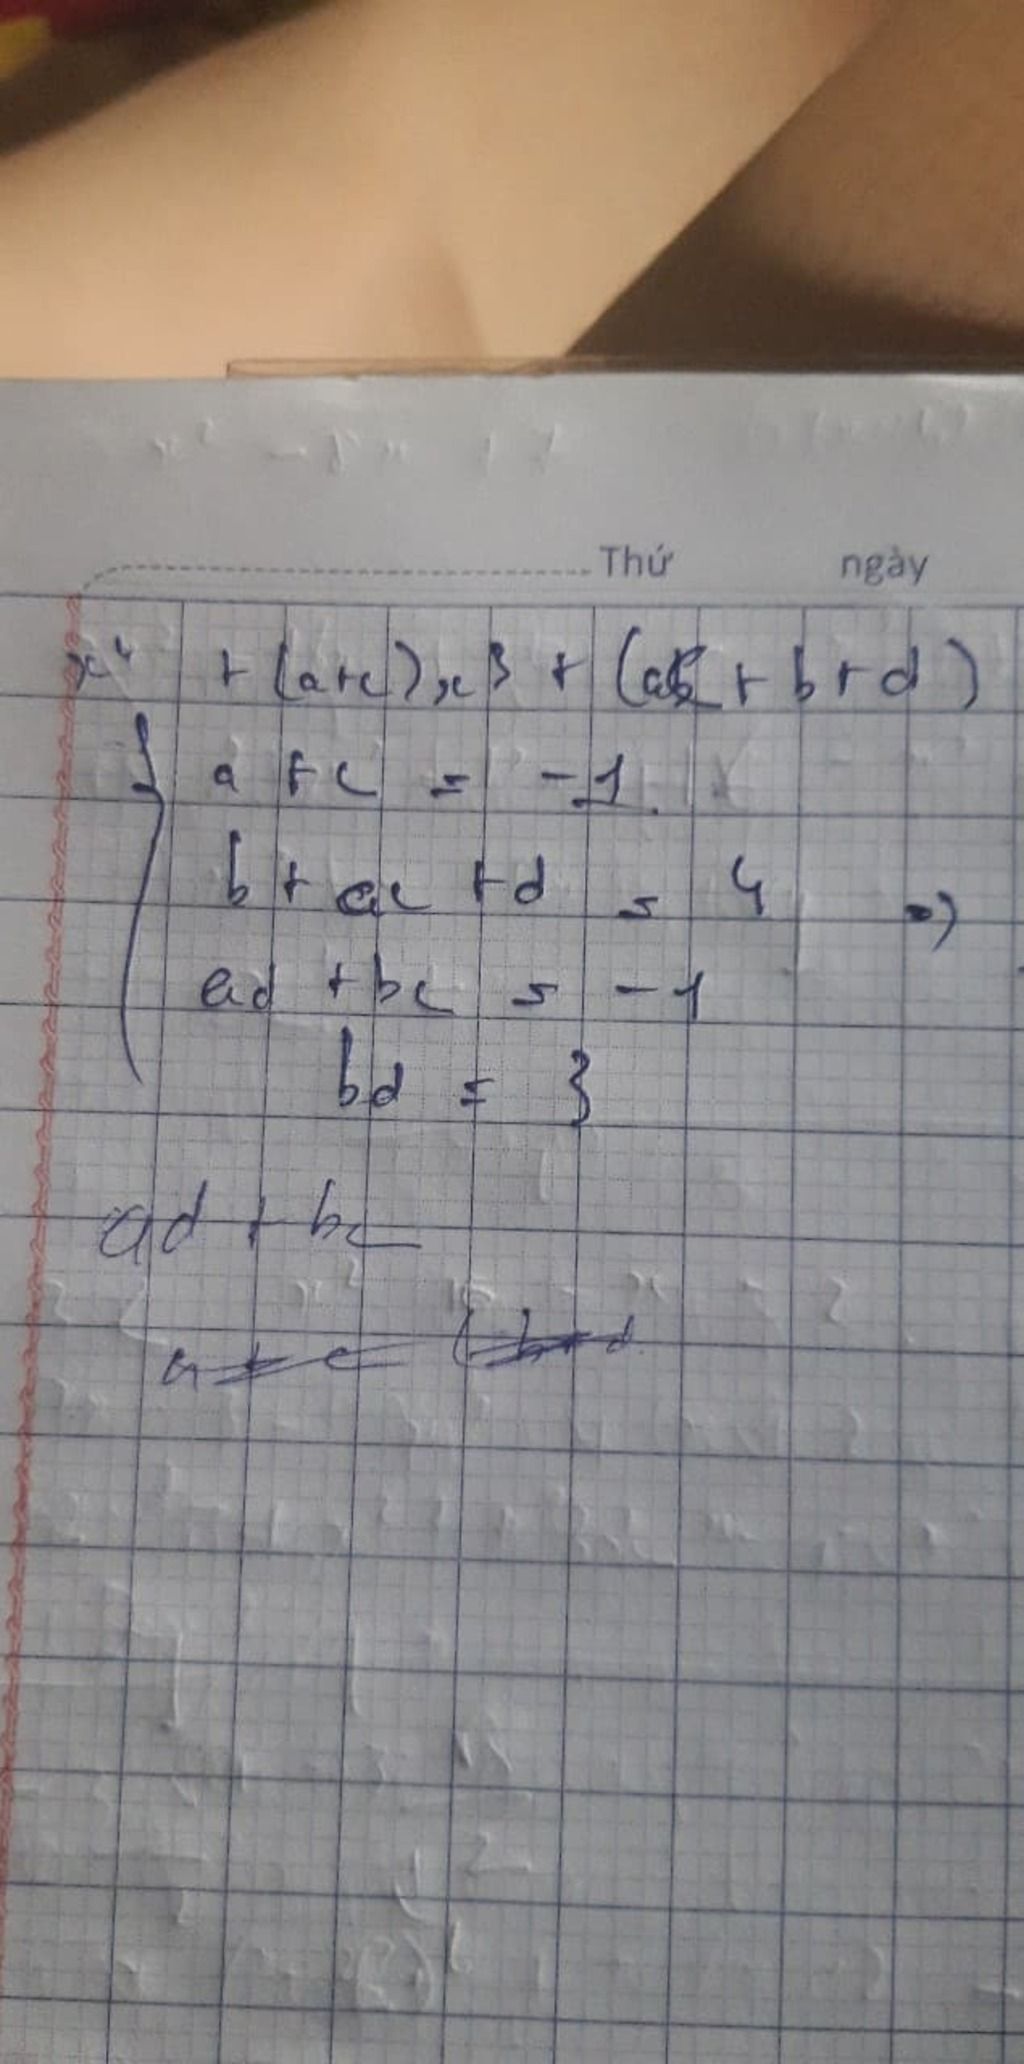 Thứ ngày
x⁴ + (a+c)x³ + (ac + b + d)
a + c = -1
b + ac + d = 4 =>
ad + bc = -1
bd = 3
ad + bc